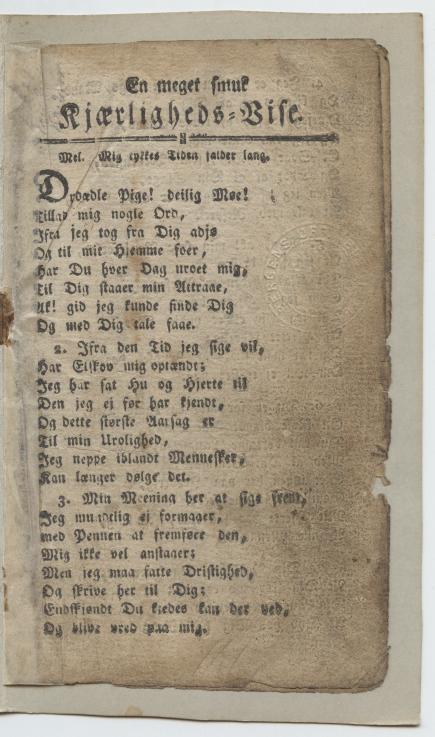 En meget smuk
Kjærligheds-Vise.
Mel. Mig tykkes Tiden falder lang.
Dydædle Pige! deilig Møe!
Tillad mig nogle Ord,
Ifra jeg tog fra Dig adjø
Og til mit Hjemme foer,
Har Du hver Dag uroet mig,
Til Dig staaer min Attraae,
Ak! gid jeg kunde finde Dig
Og med Dig tale faae.
2. Ifra den Tid jeg sige vil,
Har Elskov mig optændt;
Jeg har sat Hu og Hjerte til
Den jeg ej før har kjendt,
Og dette største Aarsag er
Til min Urolighed,
Jeg neppe iblandt Mennesker,
Kan længer dølge det.
3. Min Meening her at sige frem,
Jeg mundtlig ej formaaer,
med Pennen at fremføre den,
Mig ikke vel anstaaer;
Men jeg maa fatte Dristighed,
Og skrive her til Dig;
Endskjøndt Du kjedes kan der ved,
Og blive vred paa mig.